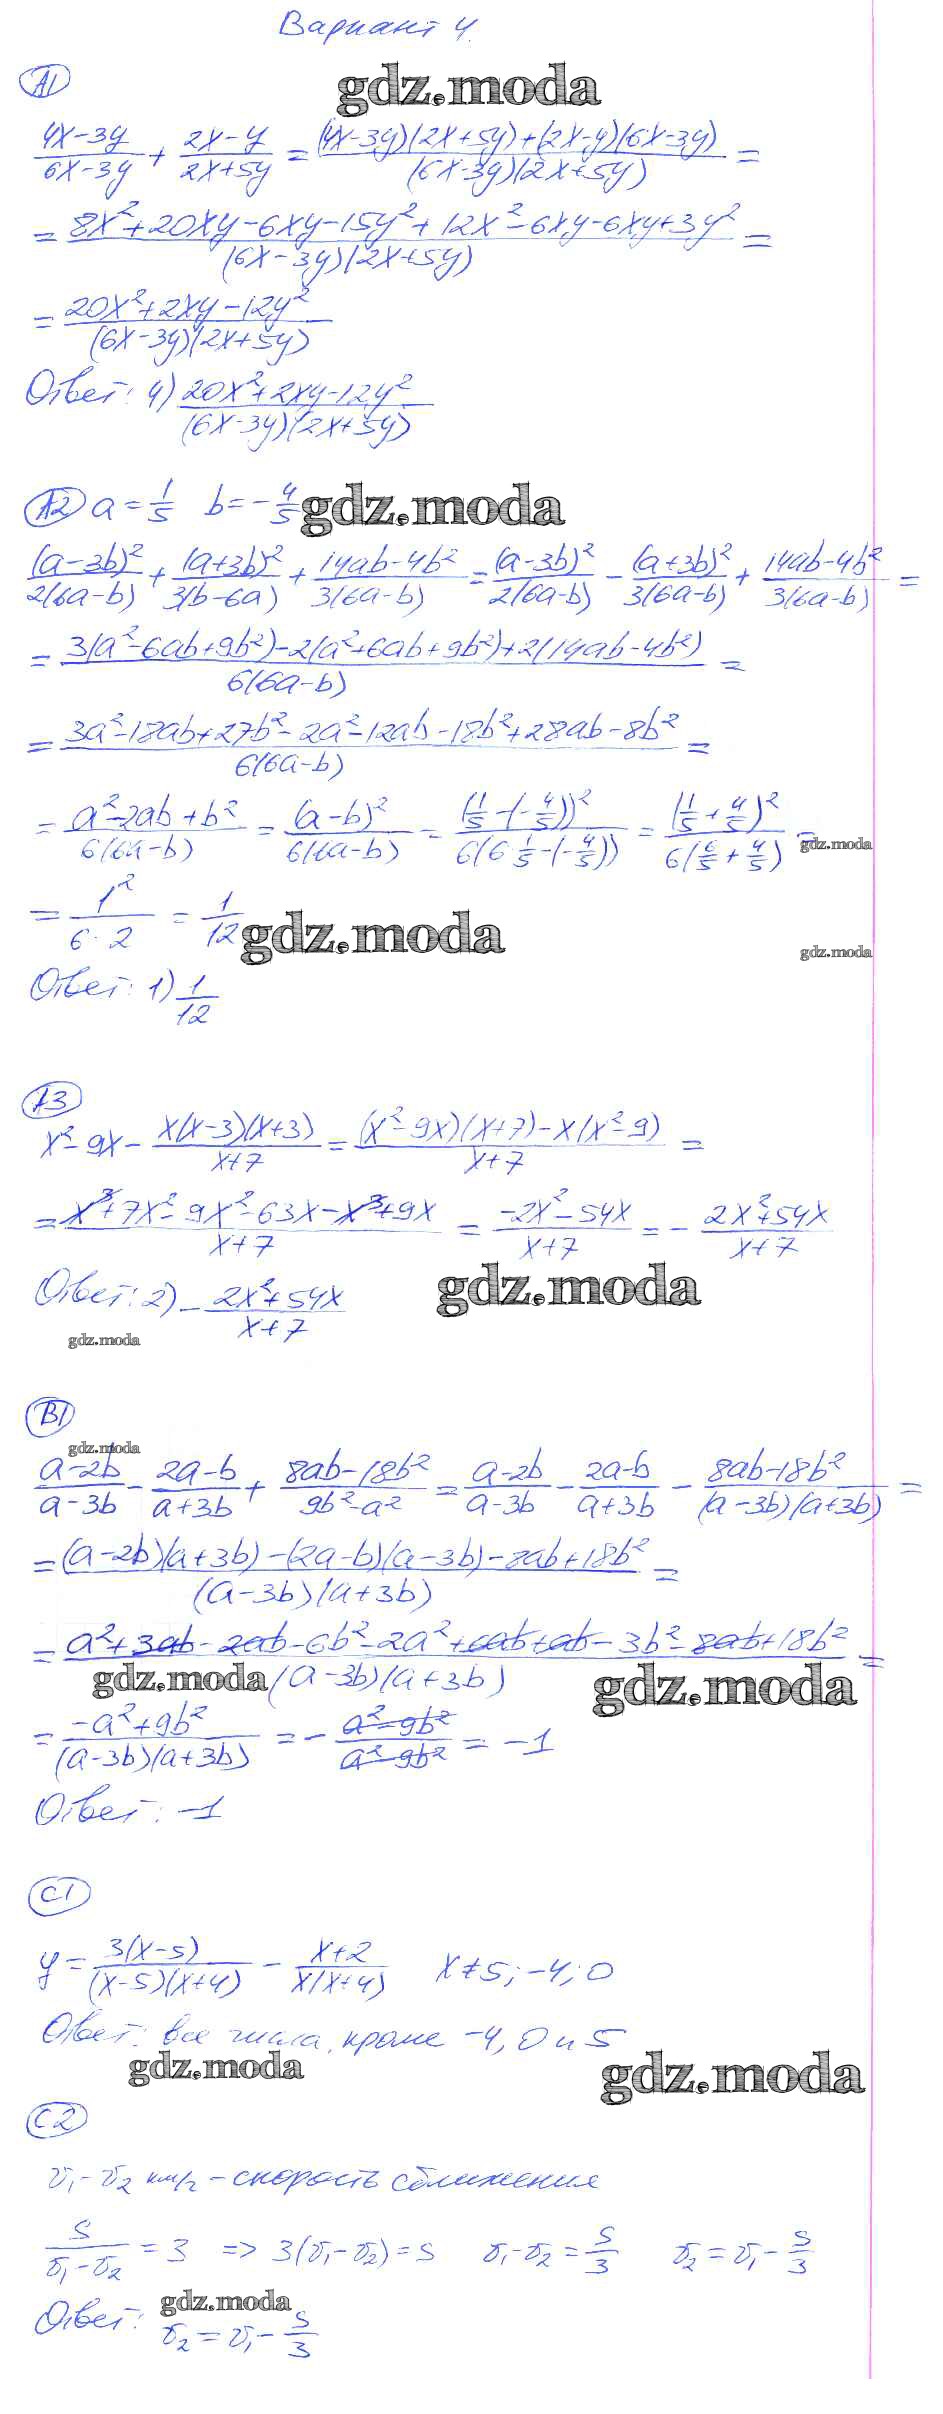 Вариант 4.
А1
gdz.moda
(4x-3y)/(6x-3y) + (2x-y)/(2x+5y) = ((4x-3y)(2x+5y)+(2x-y)(6x-3y))/((6x-3y)(2x+5y)) =
= (8x²+20xy-6xy-15y²+12x²-6xy-6xy+3y²)/((6x-3y)(2x+5y)) =
= (20x²+2xy-12y²)/((6x-3y)(2x+5y))
Ответ: 4) (20x²+2xy-12y²)/((6x-3y)(2x+5y))
А2 a = 1/5 b = -4/5
gdz.moda
(a-3b)²/(2(6a-b)) + (a+3b)²/(3(b-6a)) + (14ab-4b²)/(3(6a-b)) = (a-3b)²/(2(6a-b)) - (a+3b)²/(3(6a-b)) + (14ab-4b²)/(3(6a-b)) =
= (3(a²-6ab+9b²)-2(a²+6ab+9b²)+2(14ab-4b²))/(6(6a-b)) =
= (3a²-18ab+27b²-2a²-12ab-18b²+28ab-8b²)/(6(6a-b)) =
= (a²-2ab+b²)/(6(6a-b)) = (a-b)²/(6(6a-b)) = (1/5-(-4/5))²/(6(6·1/5-(-4/5))) = (1/5+4/5)²/(6(6/5+4/5)) =
gdz.moda
= 1²/(6·2) = 1/12
gdz.moda
gdz.moda
Ответ: 1) 1/12
А3
x²-9x - x(x-3)(x+3)/(x+7) = ((x²-9x)(x+7)-x(x²-9))/(x+7) =
= (x³+7x²-9x²-63x-x³+9x)/(x+7) = (-2x²-54x)/(x+7) = - (2x²+54x)/(x+7)
Ответ: 2) - (2x²+54x)/(x+7)
gdz.moda
gdz.moda
В1
gdz.moda
(a-2b)/(a-3b) - (2a-b)/(a+3b) + (8ab-18b²)/(9b²-a²) = (a-2b)/(a-3b) - (2a-b)/(a+3b) - (8ab-18b²)/((a-3b)(a+3b)) =
= ((a-2b)(a+3b)-(2a-b)(a-3b)-8ab+18b²)/((a-3b)(a+3b)) =
= (a²+3ab-2ab-6b²-2a²+6ab+ab-3b²-8ab+18b²)/((a-3b)(a+3b)) =
gdz.moda
gdz.moda
= (-a²+9b²)/((a-3b)(a+3b)) = - (a²-9b²)/(a²-9b²) = -1
Ответ: -1
С1
y = 3(x-5)/((x-5)(x+4)) - (x+2)/(x(x+4)) x≠5; -4; 0
Ответ: все числа, кроме -4, 0 и 5
gdz.moda
gdz.moda
С2
v₁-v₂ км/ч - скорость сближения
S/(v₁-v₂) = 3 => 3(v₁-v₂)=S v₁-v₂ = S/3 v₂ = v₁ - S/3
gdz.moda
Ответ: v₂ = v₁ - S/3